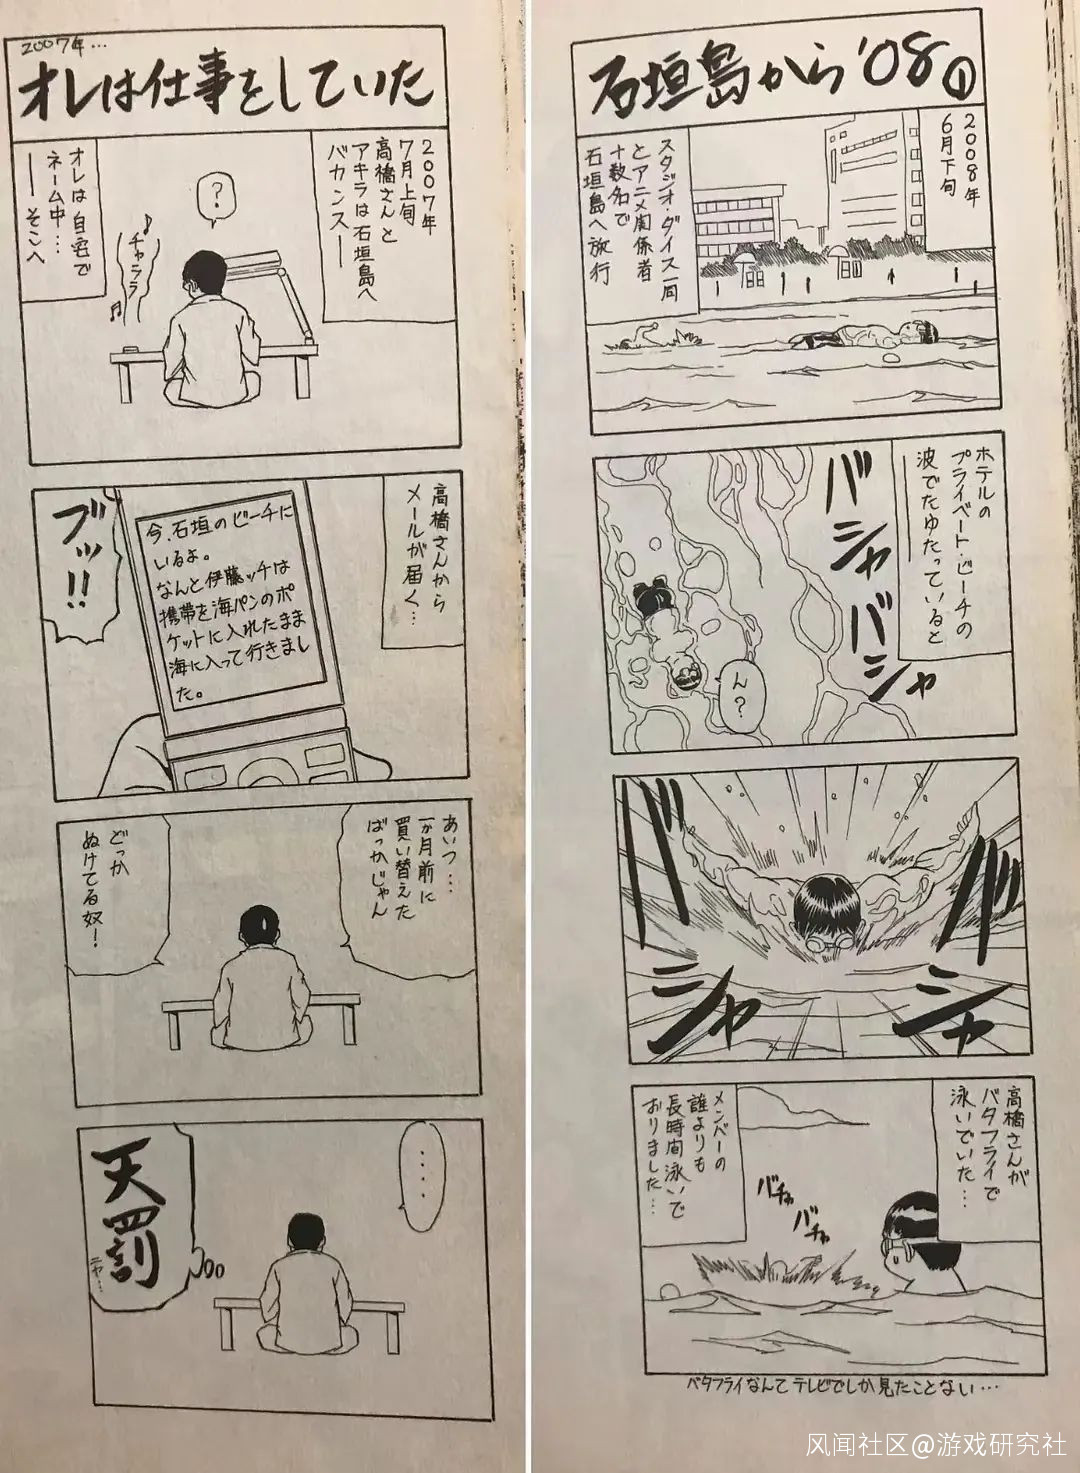 2007年…
オレは仕事をしていた
2007年
7月上旬
高橋さんと
アキラは石垣島へ
バカンス──
？
♪チャララ♬
オレは自宅で
ネーム中…
──そこへ
高橋さんから
メールが届く…
今、石垣のビーチに
いるよ。
なんと伊藤ッチは
携帯を海パンのポ
ケットに入れたまま
海に入って行きまし
た。
ブッ!!
あいつ…
一か月前に
買い替えた
ばっかじゃん
どっか
ぬけてる奴！
‥‥
天罰
ニヤ…
石垣島から'08①
2008年
6月下旬
スタジオ・ダイス一同
とアニメ関係者
十数名で
石垣島へ旅行
ホテルの
プライベート・ビーチの
波でたゆたっていると
──
バシャバシャ
ん？
バシャ
バシャ
高橋さんが
バタフライで
泳いでいた…
バチャ
バチャ
メンバーの
誰よりも
長時間泳いで
おりました…
バタフライなんてテレビでしか見たことない…
风闻社区@游戏研究社